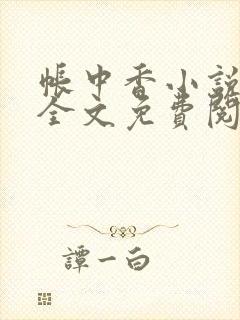 帳中香小說
全文免費閱
譚一白